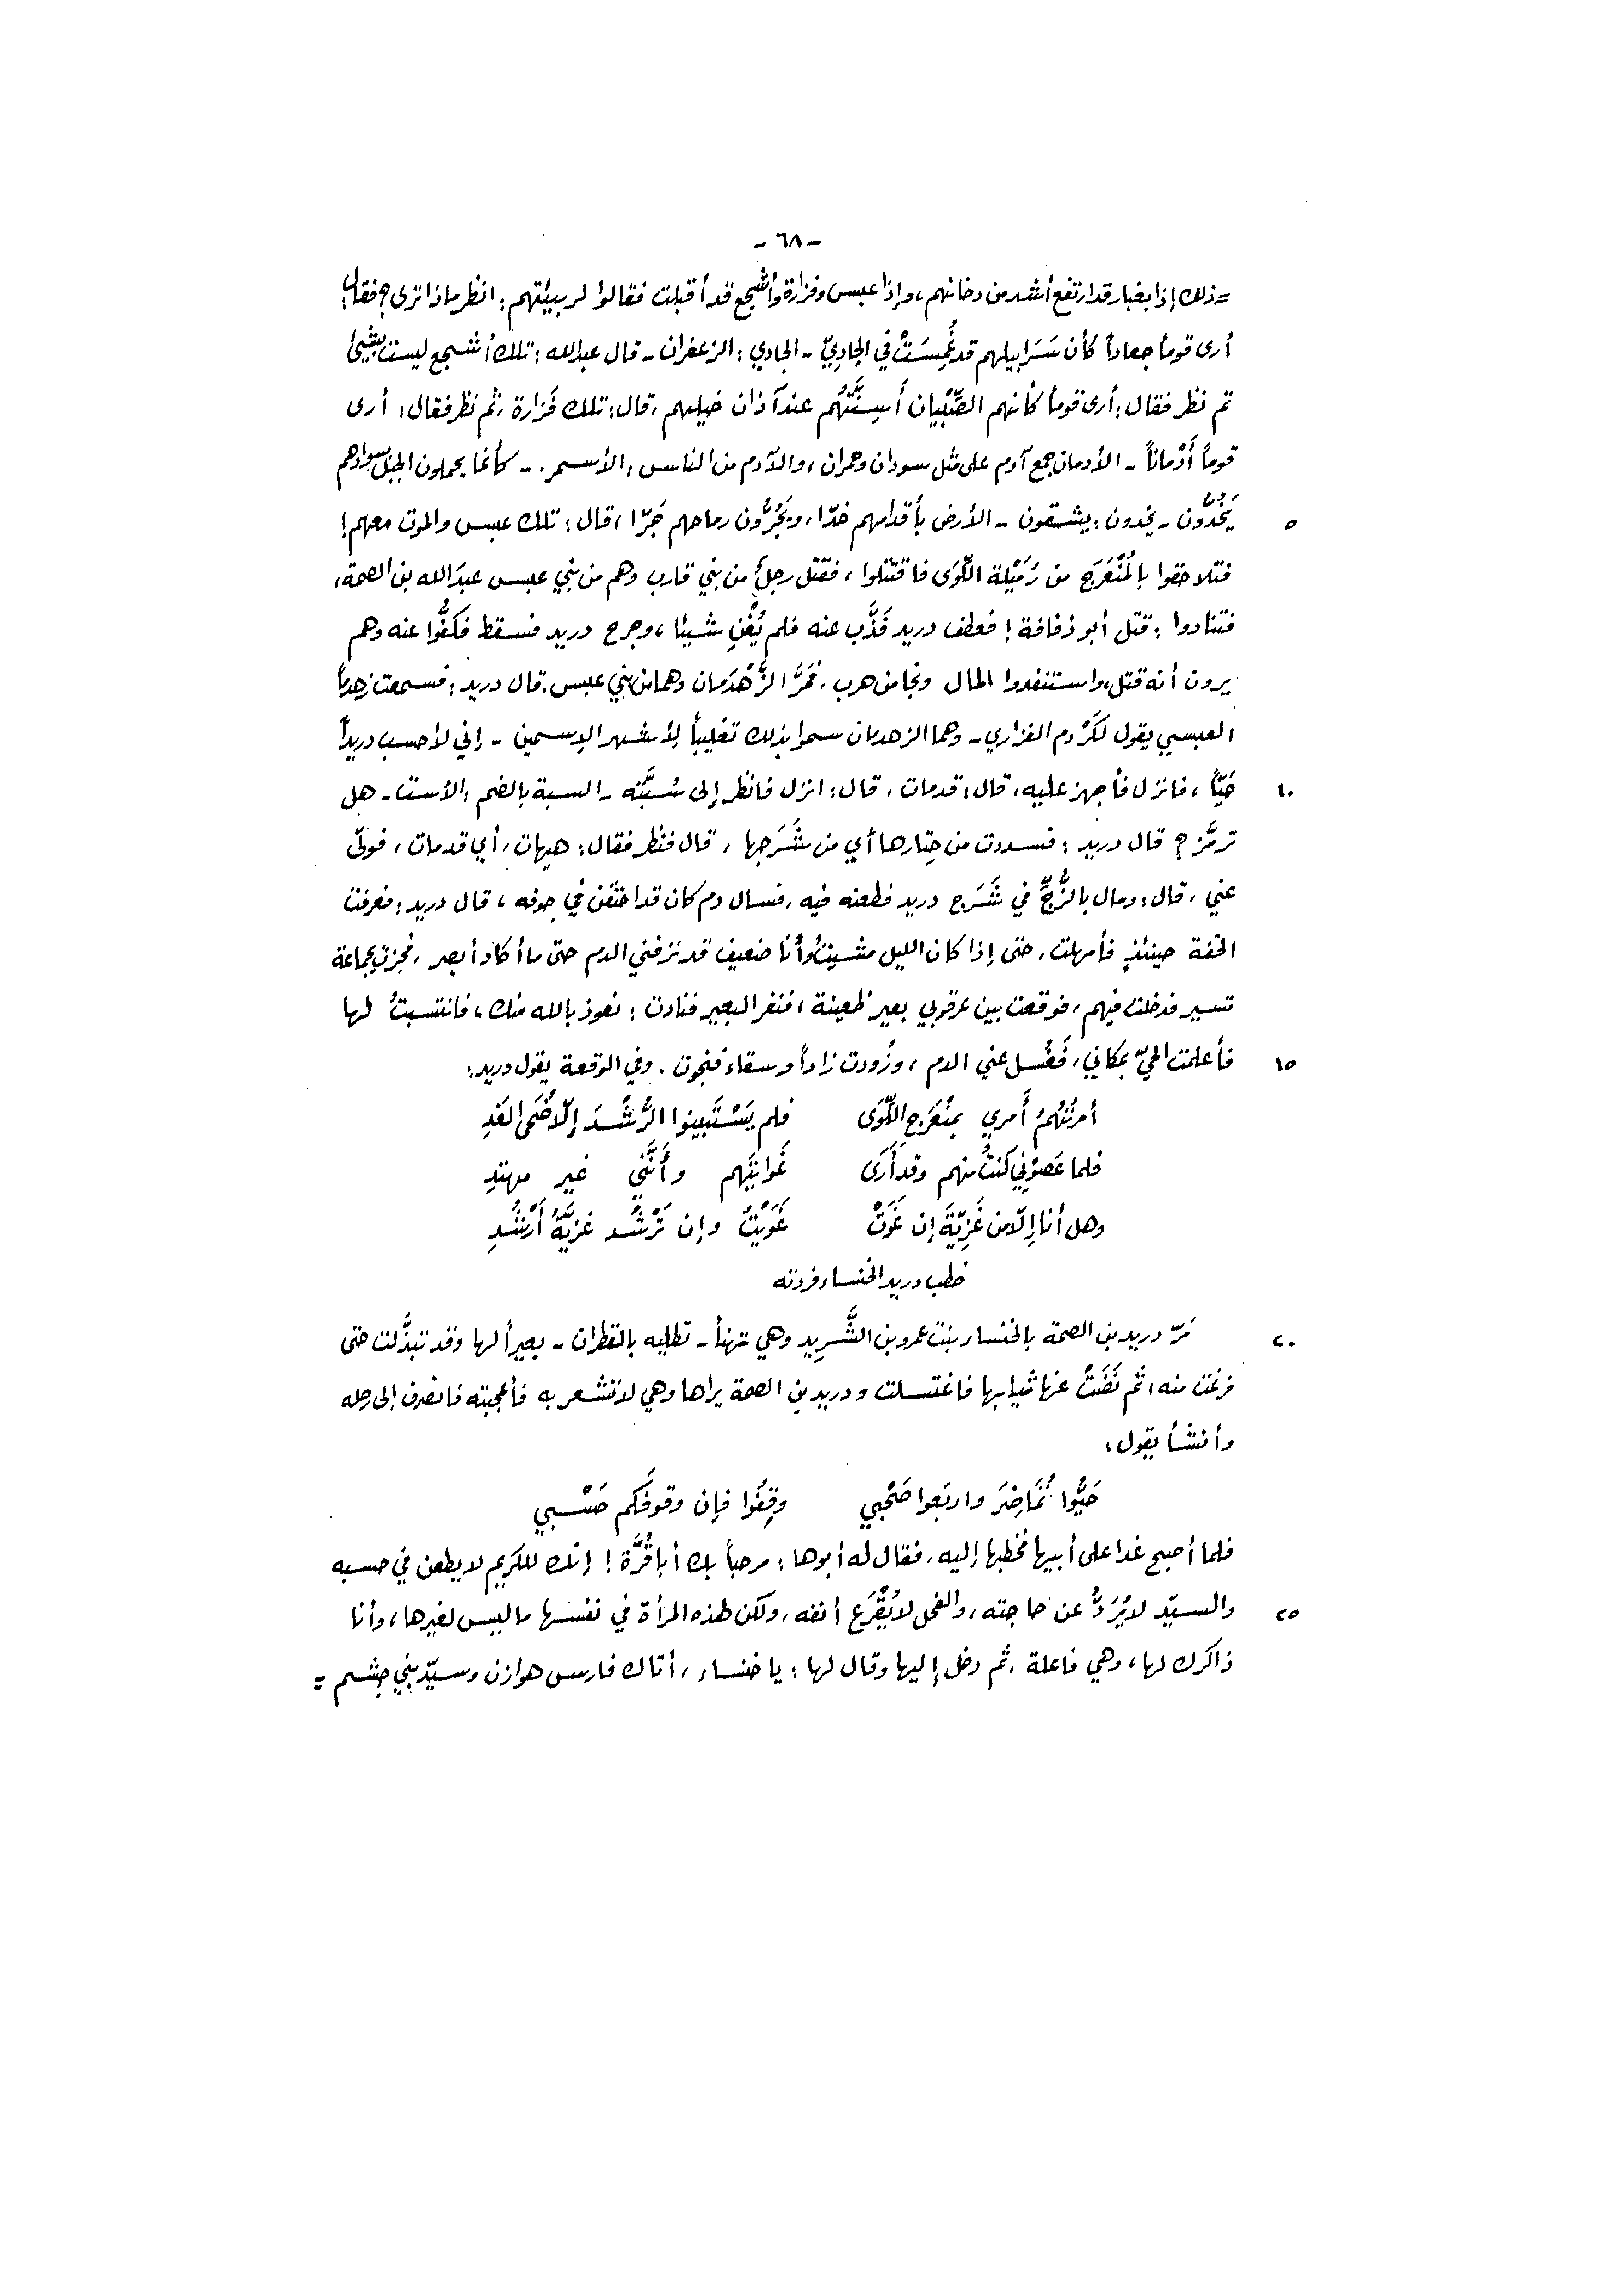 - ٦٨ -
= ذلك إذا بغبار قد ارتفع أشد من دخانهم، وإذا عبس وفزارة وأشجع قد أقبلت فقالوا لربيئتهم: انظر ماذا ترى؟ فقال:
أرى قوماً جعاداً كأن سَرَابيلهم قد غُمِسَتْ في الجادِيّ - الجادي: الزعفران - قال عبدالله: تلك أشجع ليست بشيئ
ثم نظر فقال: أرى قوماً كأنهم الصِّبْيان أَسِنَّتُهُم عند آذان خيلهم، قال: تلك فَزارة، ثم نظر فقال: أرى
قوماً أُدْماناً - الأدمان جمع آدم على مثل سودان وحمران، والآدم من الناس: الأسمر. - كأنما يحملون الجبل بسوادهم
٥ يَخُدُّون - يخدون: يشقون - الأرض بأقدامهم خدّا، ويَجُرُّون رماحهم جَرّا، قال: تلك عبس والموت معهم!
فتلاحقوا بالمُنْعَرَج من رُمَيْلة اللِّوَى فاقتتلوا، فقتل رجلٌ من بني قارب وهم من بني عبس عبدَالله بن الصمة،
فتنادوا: قتل أبو ذفافة! فعطف دريد فَذَّب عنه فلم يُغْنِ شيئا، وجرح دريد فسقط فكَفُّوا عنه وهم
يرون أنه قتل، واستنفدوا المال ونجا من هرب، فمَرَّ الزَّهْدَمان وهما من بني عبس. قال دريد: فسمعت زهدماً
العبسي يقول لكَرْدم الفزاري - وهما الزهدمان سموا بذلك تغليباً لأشهر الإسمين - إني لأحسب دريداً
١٠ حَيّاً، فانزل فأجهز عليه، قال: قدمات، قال: انزل فانظر إلى سُبَّته - السبة بالضم: الأست - هل
ترمَّز؟ قال دريد: فسددت من حِتارها أي من شَرَجها، قال فنظر فقال: هيهات، أي قدمات، فولّى
عني، قال: ومال بالزُّجِّ في شَرَج دريد فطعنه فيه، فسال دم كان قد اختقن في جوفه، قال دريد: فعرفت
الخفة حينئذٍ فأمهلت، حتى إذا كان الليل مشيتُ وأنا ضعيف قد نزفني الدم حتى ما أكاد أبصر، فجزت بجماعة
تسير فدخلت فيهم، فوقعت بين عرقوبي بعير ظعينة، فنفر البعير فنادت: نعوذ بالله منك، فانتسبتُ لها
١٥ فأعلمت الحيّ بمكاني، فَغُسل عني الدم، وزُودت زاداً وسقاءً فنجوت. وفي الوقعة يقول دريد:
أمرْتُهُمُ أَمري بمُنْعَرَجِ اللِّوَى     فلم يَسْتَبينوا الرُّشْدَ إلّا ضُحَى الغَدِ
فلما عَصوْني كنتُ منهم وقد أَرَى     غَوايَتَهم وأَنَّني غير مهتدِ
وهل أنا إلّا من غَزِيّةَ إن غَوَتْ     غَوَيْتُ وإن تَرْشُد غزيّةُ أَرْشُدِ
خطب دريد الخنساء فردته
٢٠ مَرّ دريد بن الصمة بالخنساء بنت عمرو بن الشَّرِيد وهي تهنأ - تطليه بالقطران - بعيراً لها وقد تبذَّلت حتى
فرغت منه، ثم نَضَتْ عنها ثيابها فاغتسلت ودريد بن الصمة يراها وهي لا تشعر به فأعجبته فانصرف إلى رحله
وأنشأ يقول:
حَيُّوا تُمَاضِرَ واربَعوا صَحْبي     وقِفُوا فإن وقوفَكم حَسْبي
فلما أصبح غدا على أبيها فخطبها إليه، فقال له أبوها: مرحباً بك أباقُرَّة! إنك للكريم لا يطعن في حسبه
٢٥ والسيّد لا يُرَدُّ عن حاجته، والفحل لا يُقْرَع أنفه، ولكن لهذه المرأة في نفسها ما ليس لغيرها، وأنا
ذاكرك لها، وهي فاعلة، ثم دخل إليها وقال لها: يا خنساء، أتاك فارس هوازن وسيّد بني جشم =